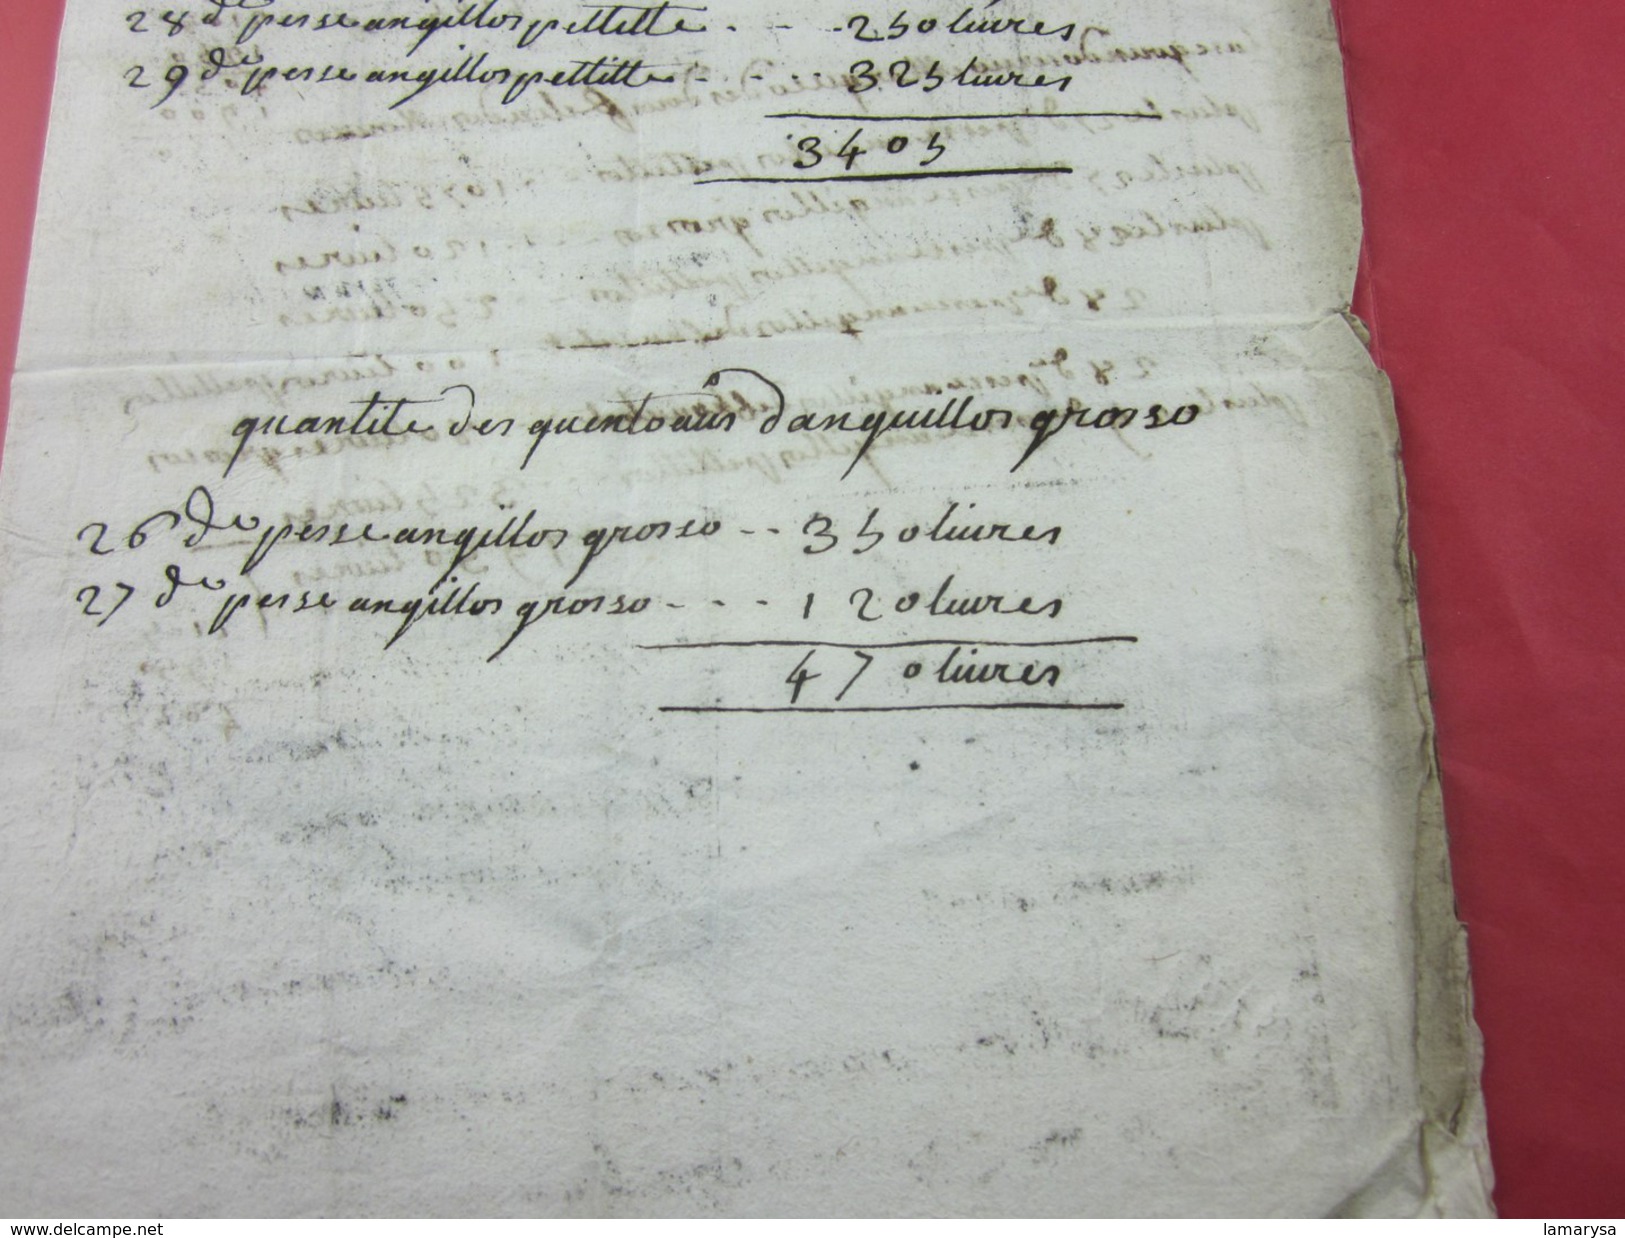 28 de pesse angillos pettitte . - . 250 livres
29 de pesse angillos pettitte - - .. 325 livres
3405
quantite des quentoaus danguillos grosso
26 de pesse angillos grosso -- 350 livres
27 de pesse angillos grosso - - - 120 livres
470 livres
www.delcampe.net
lamarysa